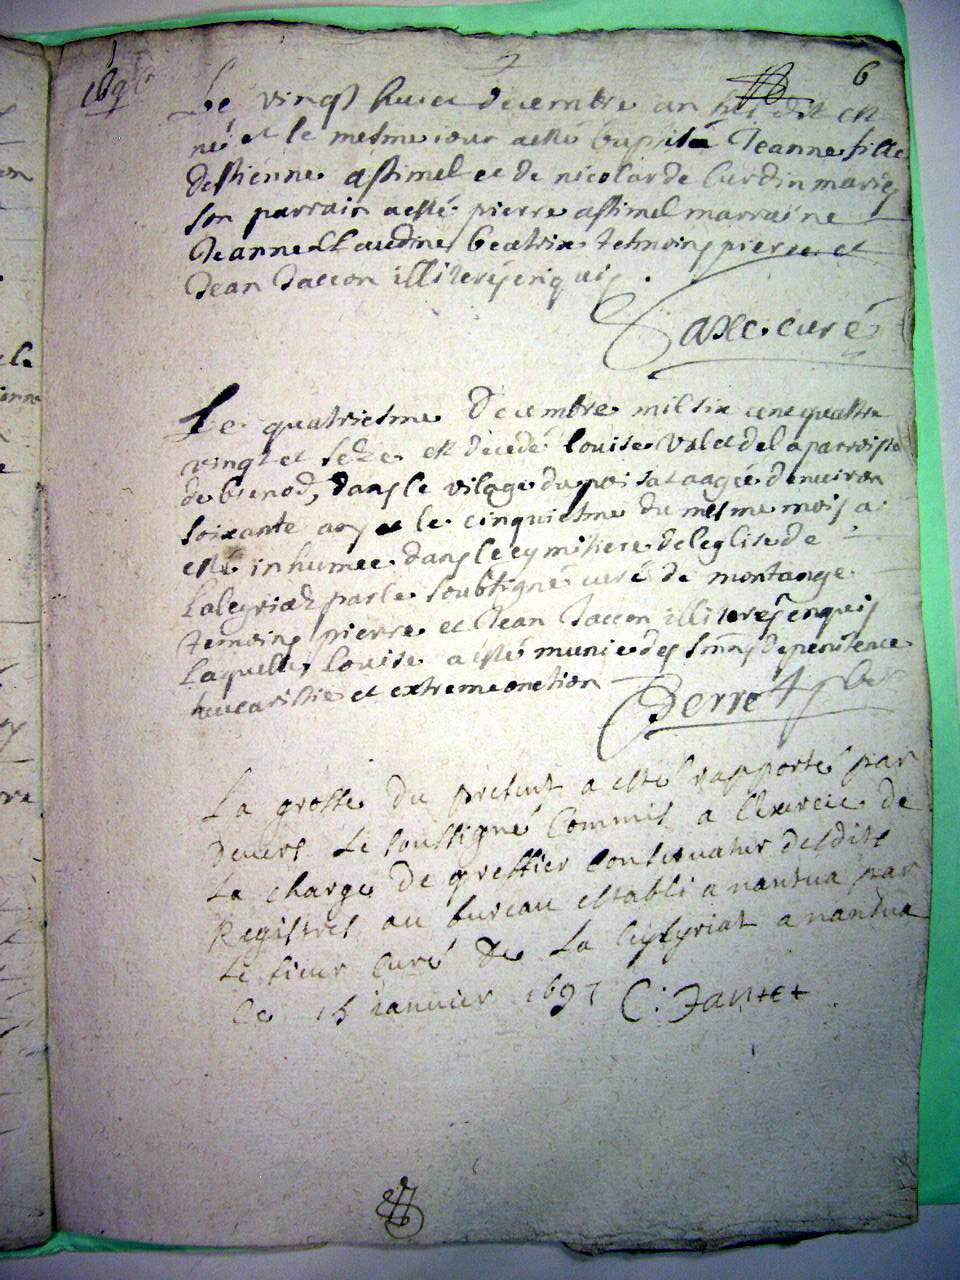 1696
6
Le vingt huict decembre an susdit est
né et le mesme iour a esté baptisé Jeanne fille
destienne astimel et de nicolarde burdin mariés
son parrain a esté pierre astimel marraine
Jeanne Claudine beatrix tesmoins pierre et
Jean Jaccon illiteres enquis .
Saxe curé
Le quatriesme Decembre mil six cent quattre
vingt et seze est décédé louise valet de la parroisse
de brenod, dans le vilage du poisat aagée denviron
soixante ans et le cinquiesme du mesme mois a
esté inhumee dans le cymitiere de leglise de
Laleyriaz par le soubsigné curé de montange
temoins pierre et Jean Jaccon illiteres enquis
laquelle louise a esté munie des smns de penitence
heucaristie et extreme onction
Perrot
La grosse du présent a esté rapporté par
devers Le soussigné Commis a l'exercice de
La charge de greffier Conservateur desdits
Registres au bureau establi a nantua par
Le sieur Curé de La leyriat a nantua
Ce 15 ianvier 1697 C: Jantet